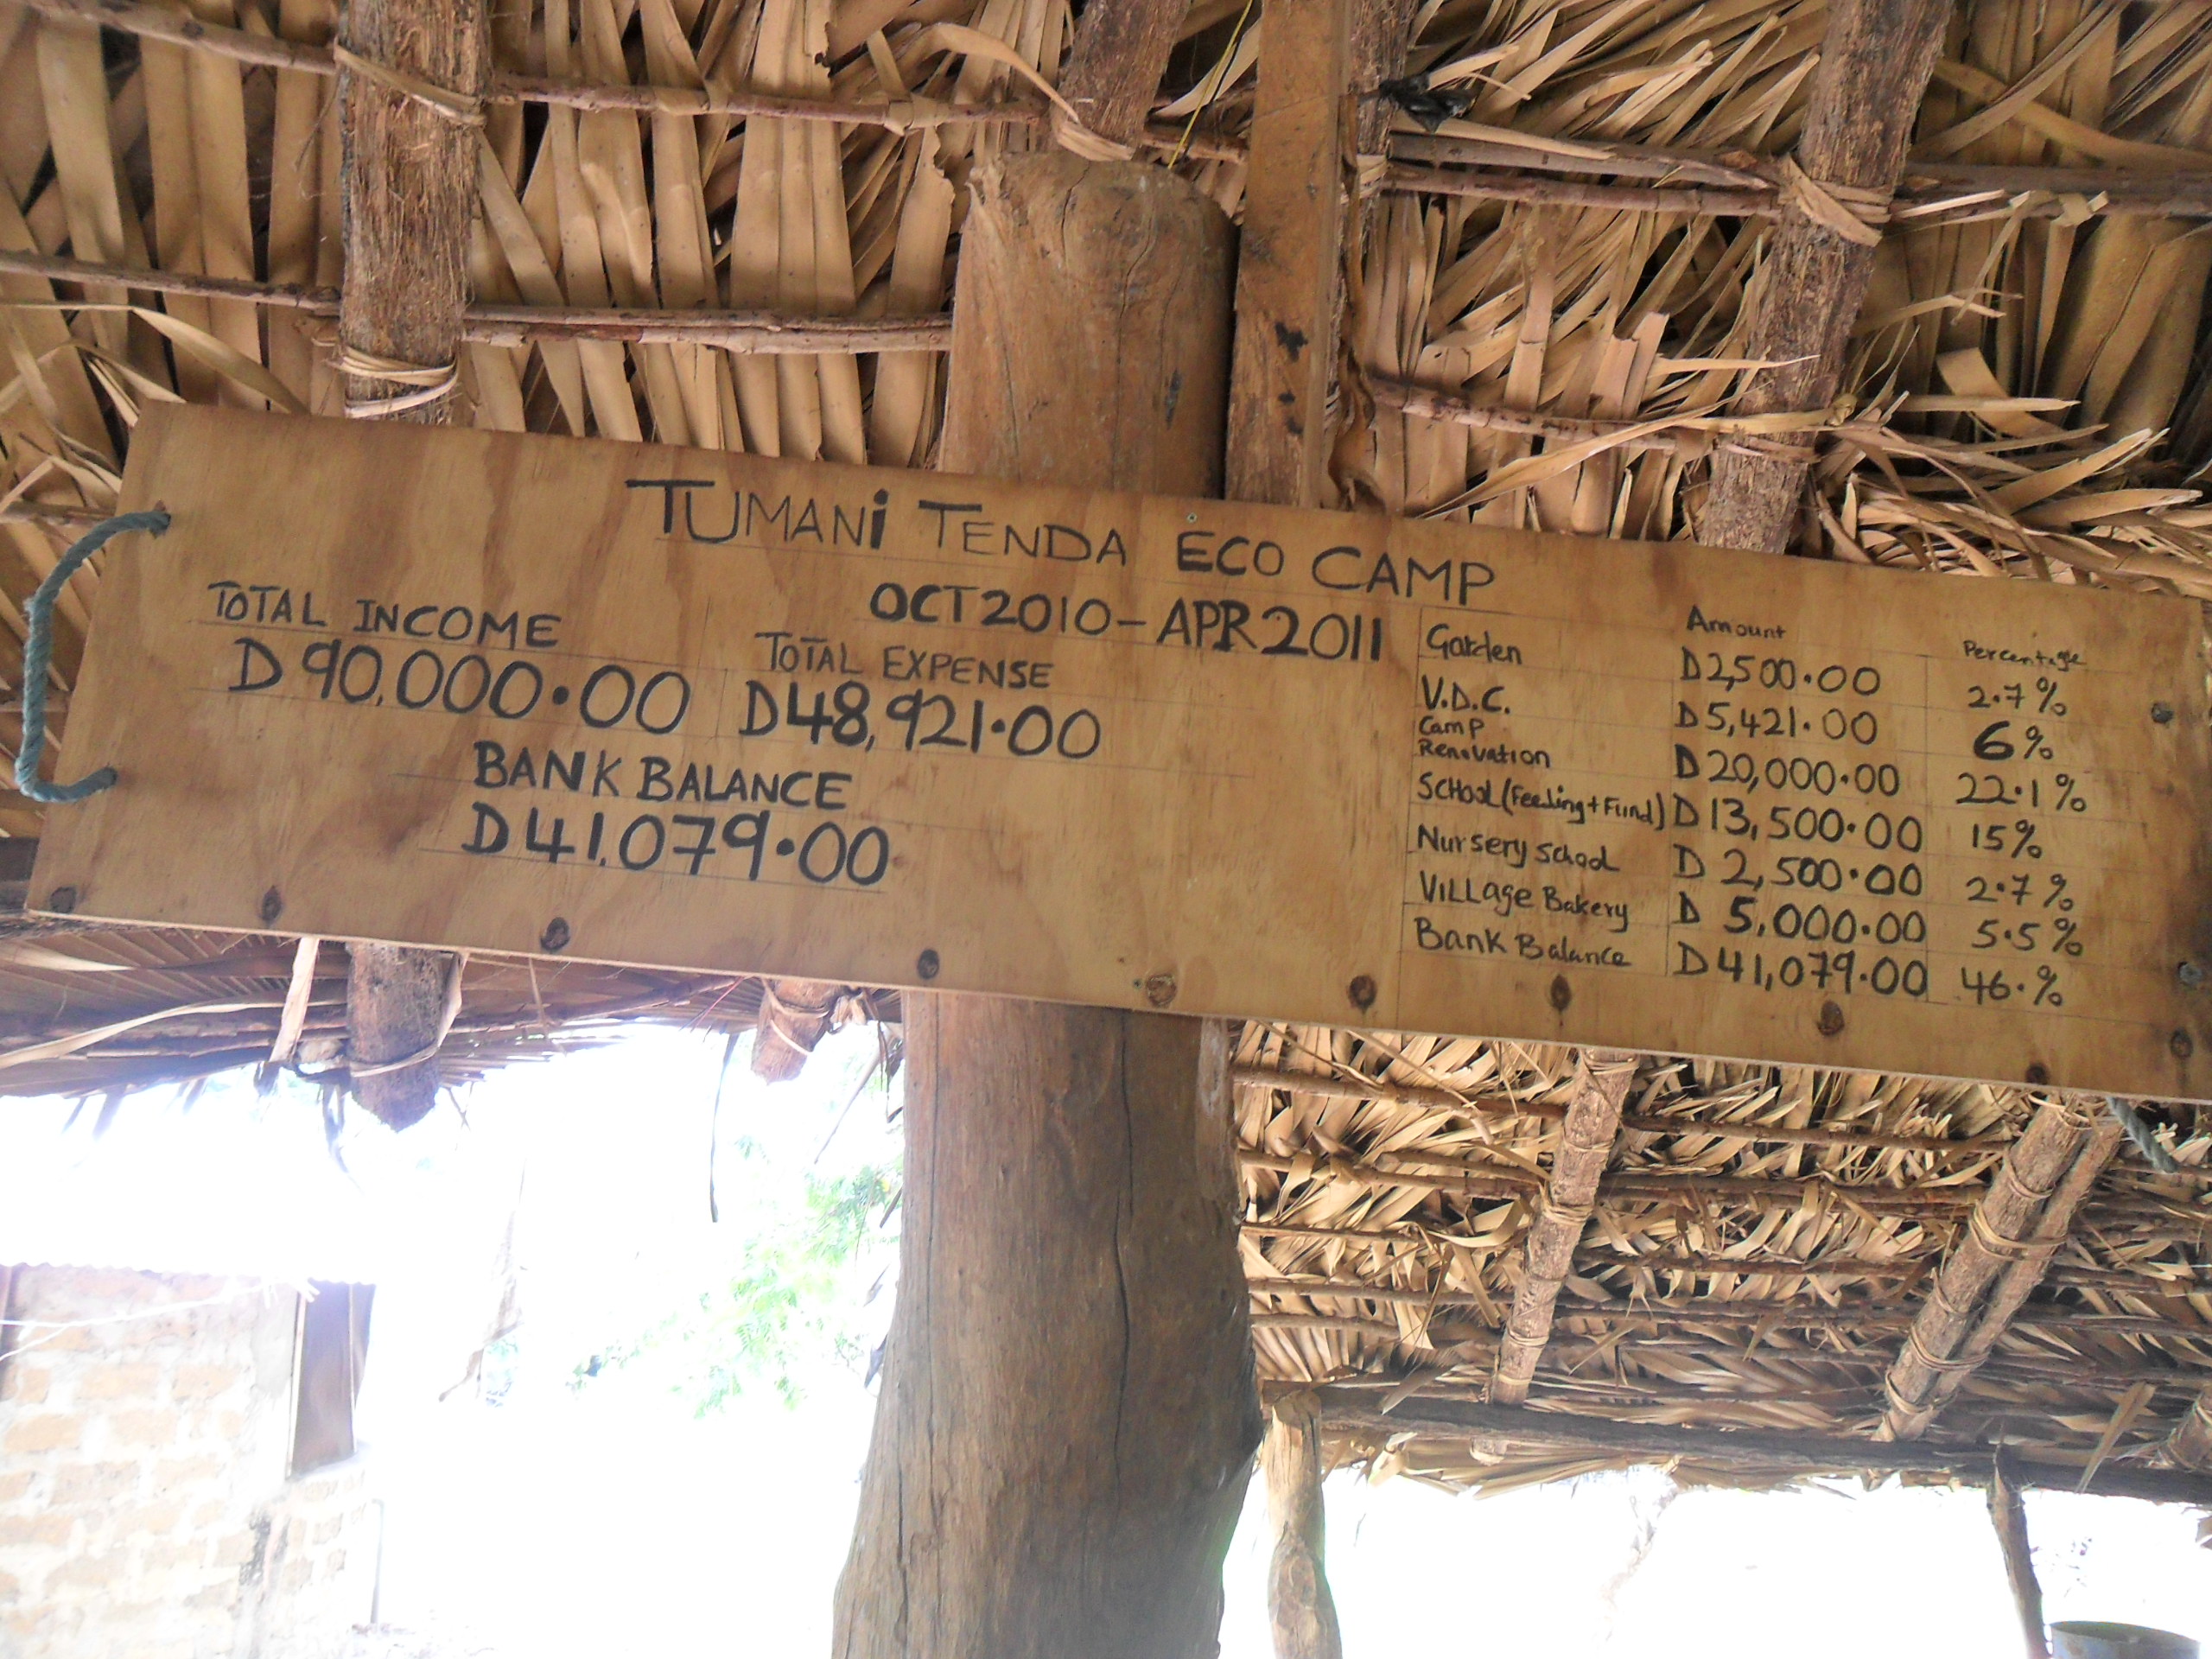 TUMANi TENDA ECO CAMP
OCT 2010 - APR 2011
TOTAL INCOME
D 90,000.00
TOTAL EXPENSE
D48,921.00
BANK BALANCE
D 41,079.00
Amount Percentage
Garden D2,500.00 2.7%
V.D.C. D 5,421.00 6%
Camp Renovation D 20,000.00 22.1%
SCHOOL (Feeding + Fund) D 13,500.00 15%
Nursery School D 2,500.00 2.7%
VILLage Bakery D 5,000.00 5.5%
Bank Balance D 41,079.00 46.%